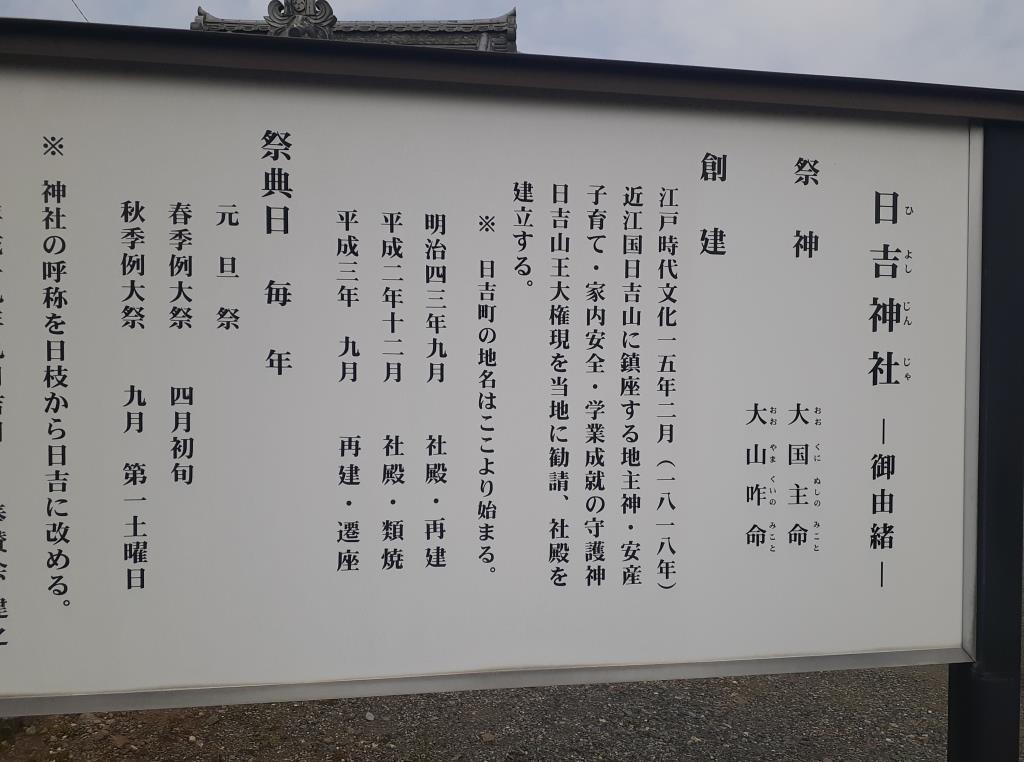 日吉神社 ―御由緒―
ひ よし じん じゃ
祭神
大国主命
おお くに ぬしの みこと
大山咋命
おお やま くいの みこと
創建
江戸時代文化一五年二月(一八一八年)
近江国日吉山に鎮座する地主神・安産
子育て・家内安全・学業成就の守護神
日吉山王大権現を当地に勧請、社殿を
建立する。
※ 日吉町の地名はここより始まる。
明治四三年九月 社殿・再建
平成二年十二月 社殿・類焼
平成三年 九月 再建・遷座
祭典日 毎年
元旦祭
春季例大祭 四月初旬
秋季例大祭 九月 第一土曜日
※ 神社の呼称を日枝から日吉に改める。